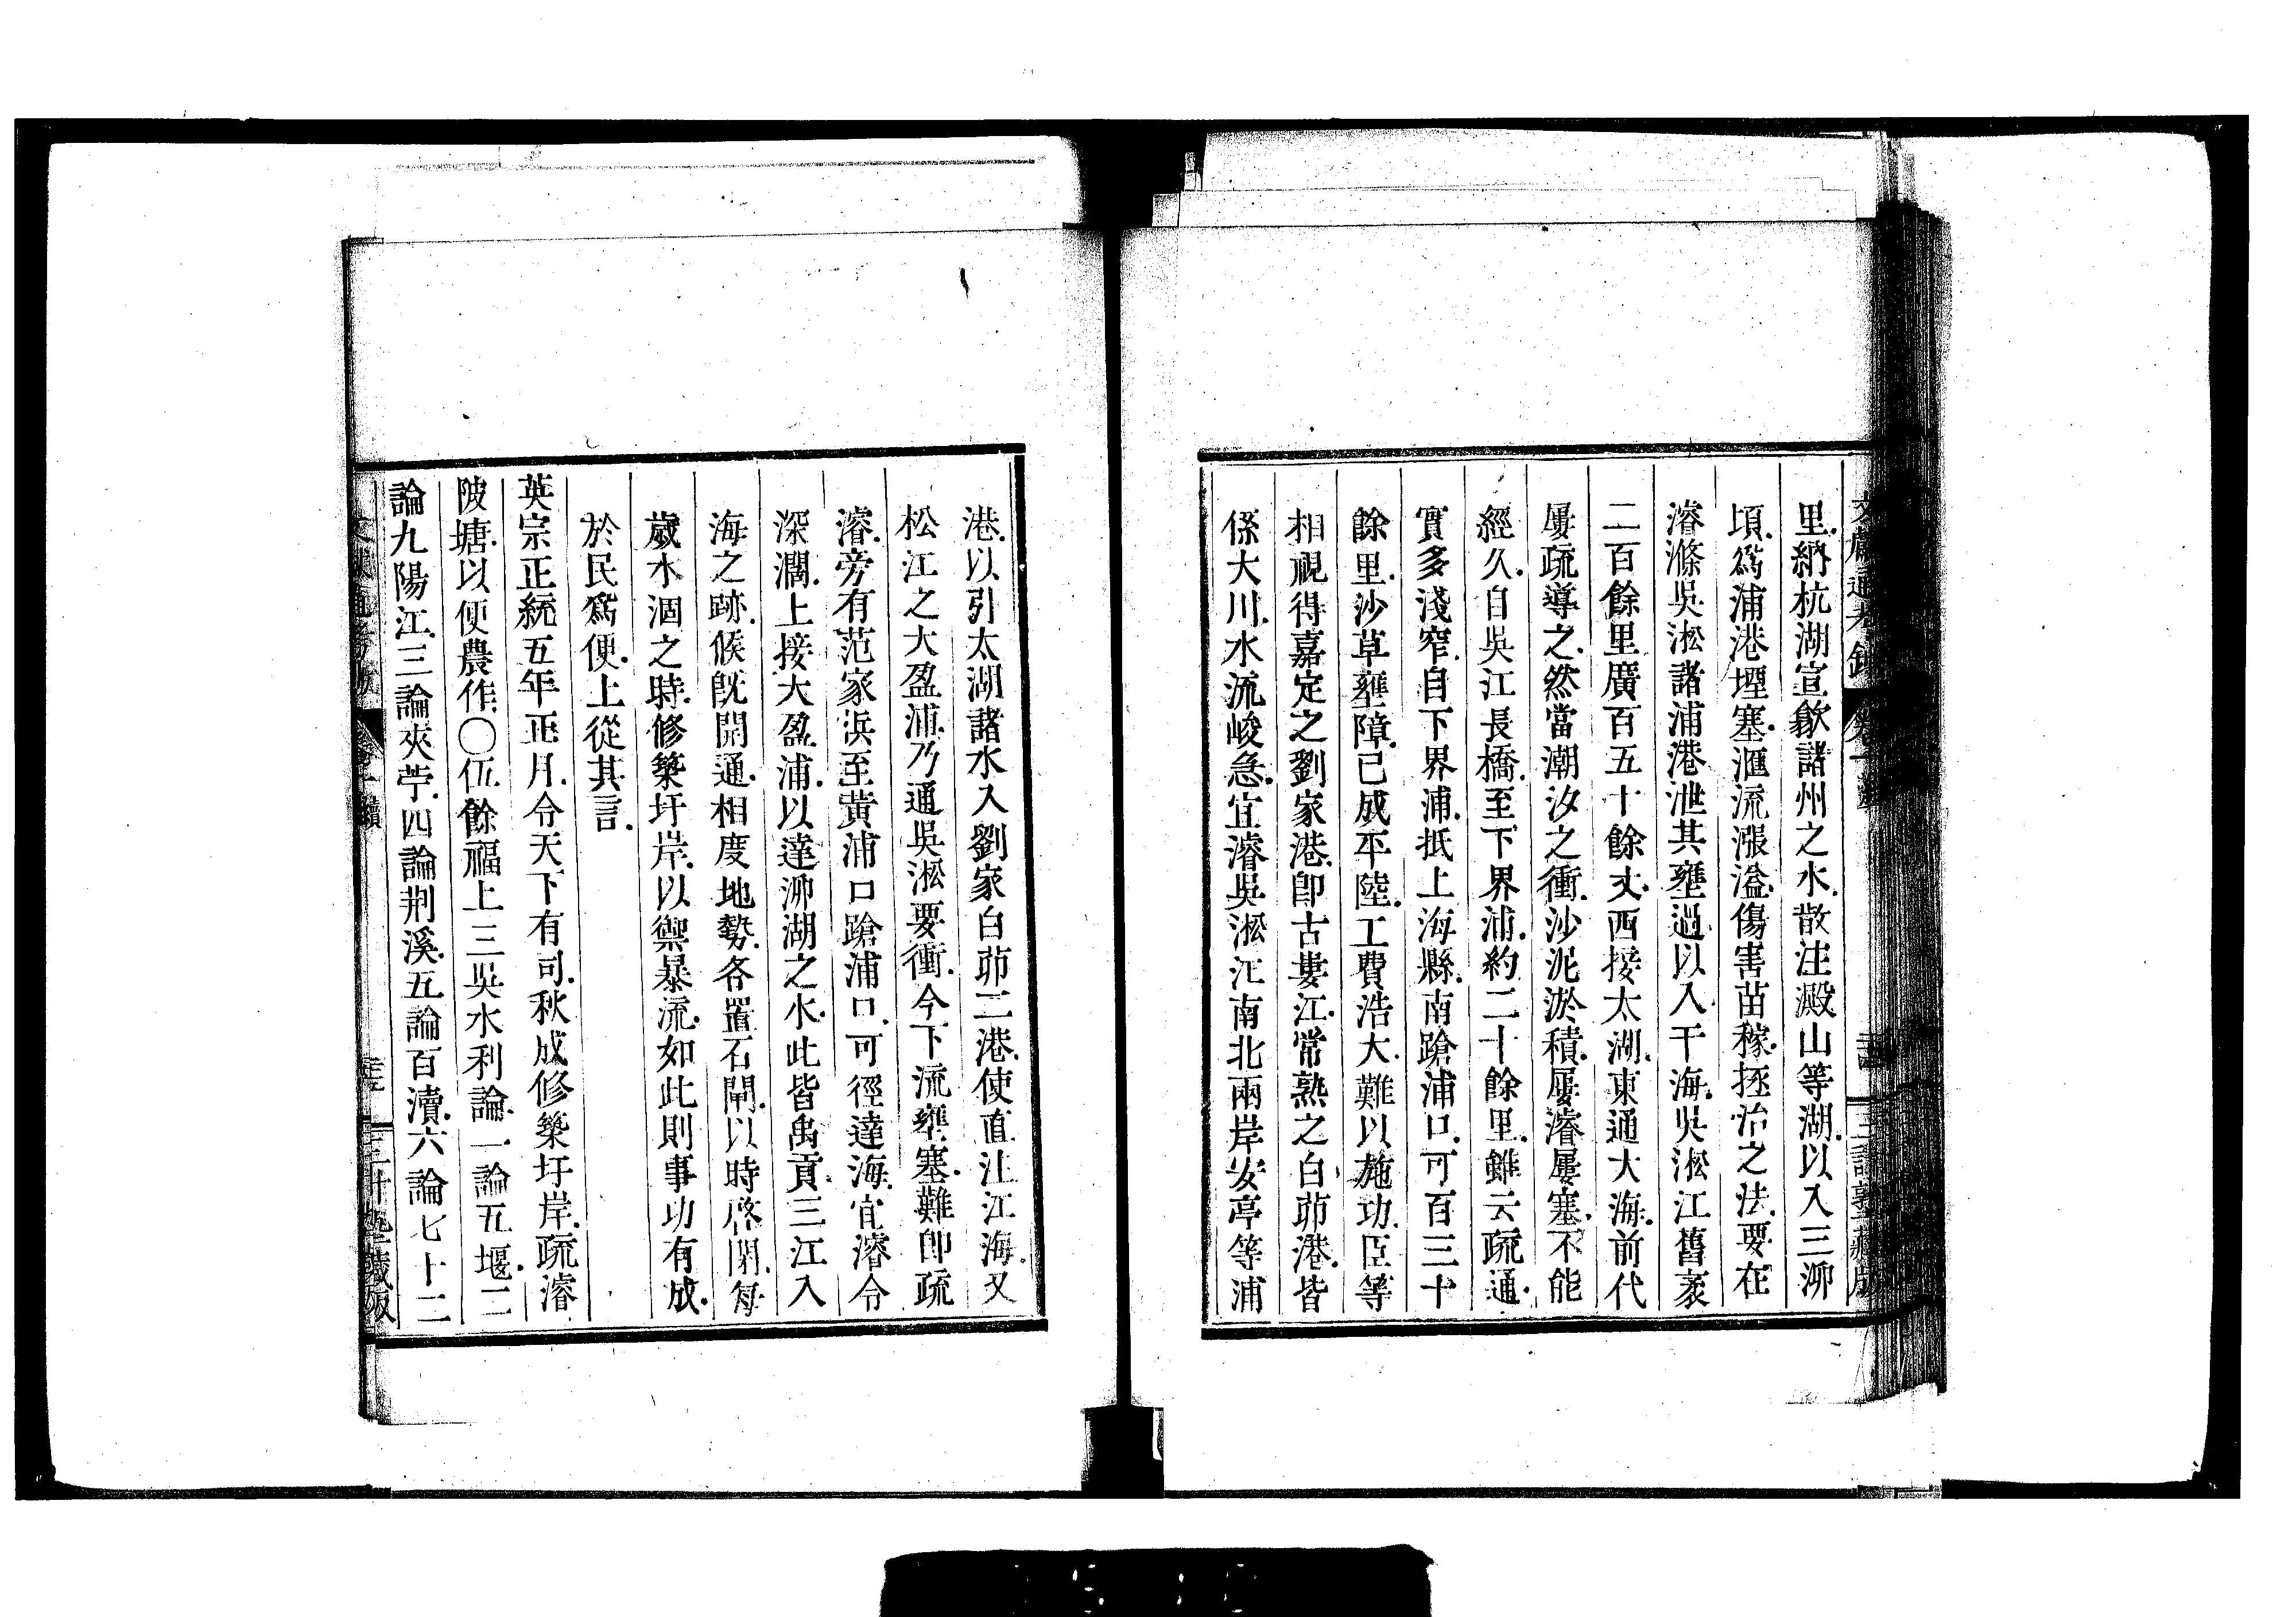 里納杭湖宣歙諸州之水散注澱山等湖以入三泖
頃爲浦港堙塞滙流漲溢傷害苗稼拯治之法要在
濬滌吳淞諸浦港泄其壅遏以入于海吳淞江舊袤
二百餘里廣百五十餘丈西接太湖東通大海前代
屢疏導之然當潮汐之衝沙泥淤積屢濬屢塞不能
經久自吳江長橋至下界浦約二十餘里雖云疏通
實多淺窄自下界浦抵上海縣南蹌浦口可百三十
餘里沙草壅障已成平陸工費浩大難以施功臣等
相視得嘉定之劉家港卽古婁江常熟之白茆港皆
係大川水流峻急宜濬吳淞江南北兩岸安亭等浦
港以引太湖諸水入劉家白茆二港使直注江海又
松江之大盈浦乃通吳淞要衝今下流壅塞難卽疏
濬旁有范家浜至黃浦口蹌浦口可徑達海宜濬令
深濶上接大盈浦以達泖湖之水此皆禹貢三江入
海之跡候旣開通相度地勢各置石閘以時啓閉每
歲水涸之時修築圩岸以禦暴流如此則事功有成
於民爲便上從其言
英宗正統五年正月令天下有司秋成修築圩岸疏濬
陂塘以便農作〇伍餘福上三吳水利論一論五堰二
論九陽江三論夾苧四論荆溪五論百瀆六論七十二